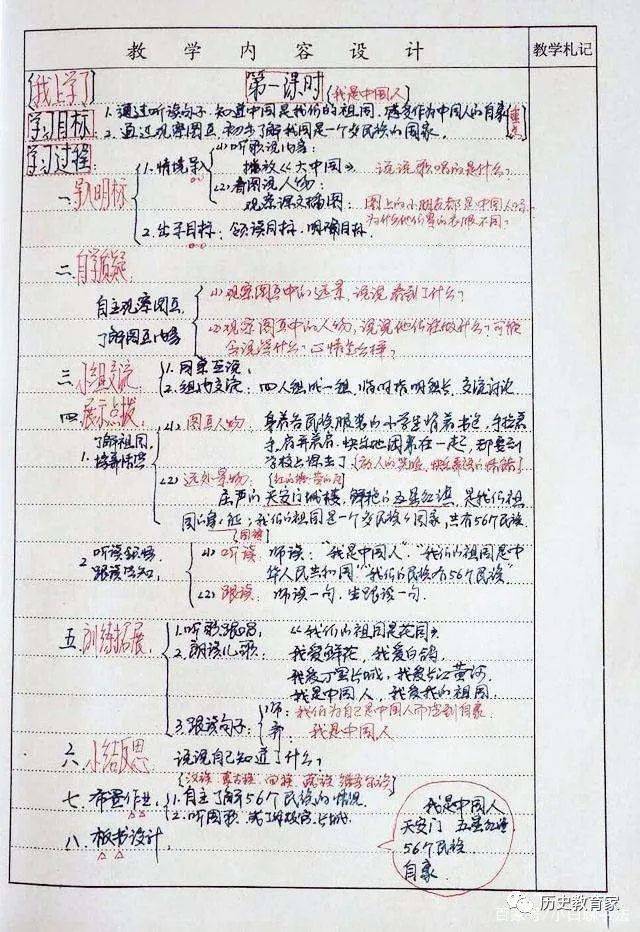 教学内容设计 教学札记
我上学了 第一课时 (我是中国人)
学习目标: 1. 通过听读句子,知道中国是我们的祖国,感受作为中国人的自豪 重点
2. 通过观察图画,初步了解我国是一个多民族的国家。
学习过程:
一.导入明标 1.情境导入 (1)听歌说内容:
播放《大中国》 说说歌唱的是什么?
(2)看图说人物:
观察课文插图: 图上的小朋友都是中国人吗?
为什么他们穿的衣服不同?
2.出示目标: 领读目标,明确目标.
二.自学质疑
(1)观察图画中的远景,说说看到了什么?
自主观察图画,
了解图画内容 (2)观察图画中的人物,说说他们在做什么?可能
会说些什么?心情怎么样?
三.小组交流. 1.同桌互说,
2.组内交流: 四人组成一组,临时指明组长,交流讨论
四.展示点拨.
1. 了解祖国, (1)图画人物: 身着各民族服装的小学生背着书包,手拉着
培养情感 手,肩并着肩,快乐地团聚在一起,那要到
学校上课去了.
(2)远处景物:
庄严的天安门城楼,鲜艳的五星红旗,是我们祖
国的象征;我们的祖国是一个多民族的国家,共有56个民族.
2. 听读领悟 (1)听读: 师读:“我是中国人”“我们的祖国是中
跟读 华人民共和国”“我们的民族有56个民族”
(2)跟读: 师读一句,生跟读一句.
五.训练拓展 1.听歌跟唱, 《我们的祖国是花园》
2.朗读儿歌: 我爱鲜花,我爱白鸽
我爱万里长城,我爱长江黄河
我是中国人,我爱我的祖国.
3.跟读句子: 师:我们为自己是中国人而感到自豪.
齐:我是中国人
六.小结反思 说说自己知道了什么?
(汉族 蒙古族 回族 藏族 维吾尔族)
七.布置作业, 1.自主了解56个民族的情况.
2.听国歌,了解故宫、长城.
八.板书设计,
我是中国人
天安门 五星红旗
56个民族
自豪
历史教育家